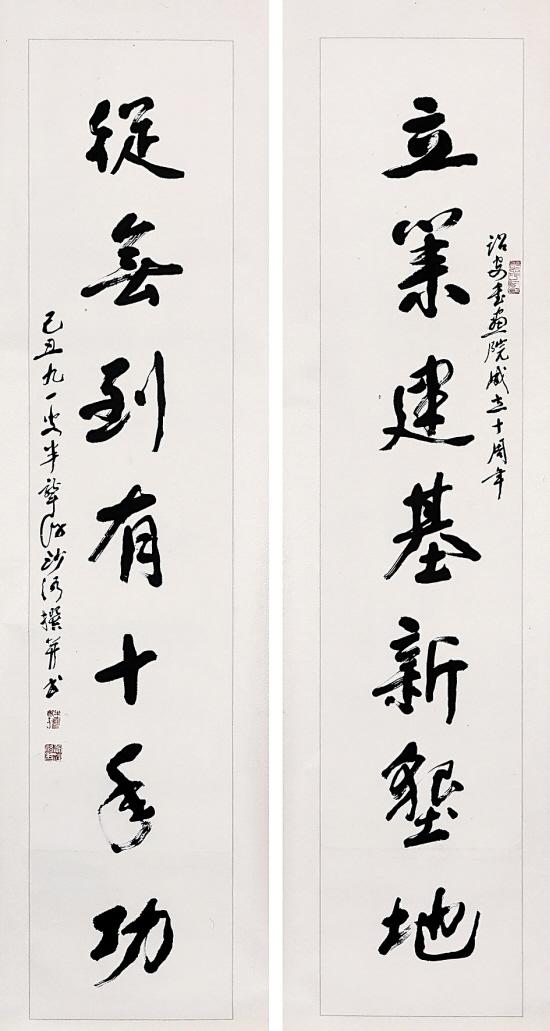 詔安書畫院成立十周年
立業建基新墾地
從無到有十年功
己丑九一叟半聾沈沙河撰并书